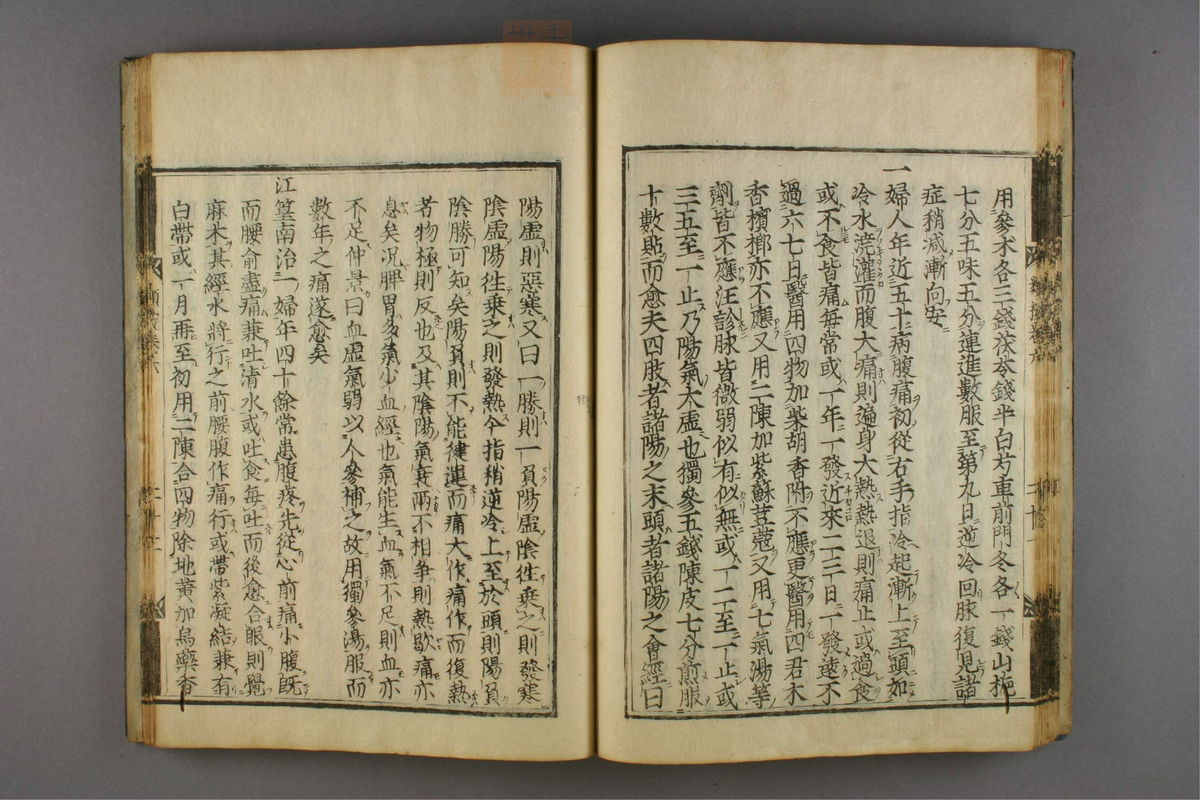 用參朮各三錢茯苓錢半白芍車前門冬各一錢山梔
七分五味五分連進數服至第九日逆冷回脉復見諸
症稍減漸向安
一婦人年近五十病腹痛初從右手指冷起漸上至頭如
冷水澆灌而腹大痛則遍身大熱熱退則痛止或過食
或不食皆痛每常或一年一發近來二三日一發遠不
過六七日醫用四物加柴胡香附不應更醫用四君木
香檳榔亦不應又用二陳加紫蘇荳蔻又用七氣湯等
劑皆不應汪診脉皆微弱似有似無或一二至一止或
三五至一止乃陽氣大虛也獨參五錢陳皮七分煎服
十數貼而愈夫四肢者諸陽之末頭者諸陽之會經曰
陽虛則惡寒又曰一勝則一負陽虛陰徃乗之則發寒
陰虛陽徃乗之則發熱今指稍逆冷上至於頭則陽負
陰勝可知矣陽負則不能健運而痛大作痛作而復熱
者物極則反也及其陰陽氣衰兩不相争則熱歇痛亦
息矣况脾胃多氣少血經也氣能生血氣不足則血亦
不足仲景曰血虛氣弱以人參補之故用獨參湯服而
數年之痛遂愈矣
江篁南治一婦年四十餘常患腹疼先從心前痛小腹既
而腰俞盡痛兼吐清水或吐食每吐而後愈合眼則覺
麻木其經水將行之前腰腹作痛行或帶紫凝結兼有
白帶或一月再至初用二陳合四物除地黄加烏藥香